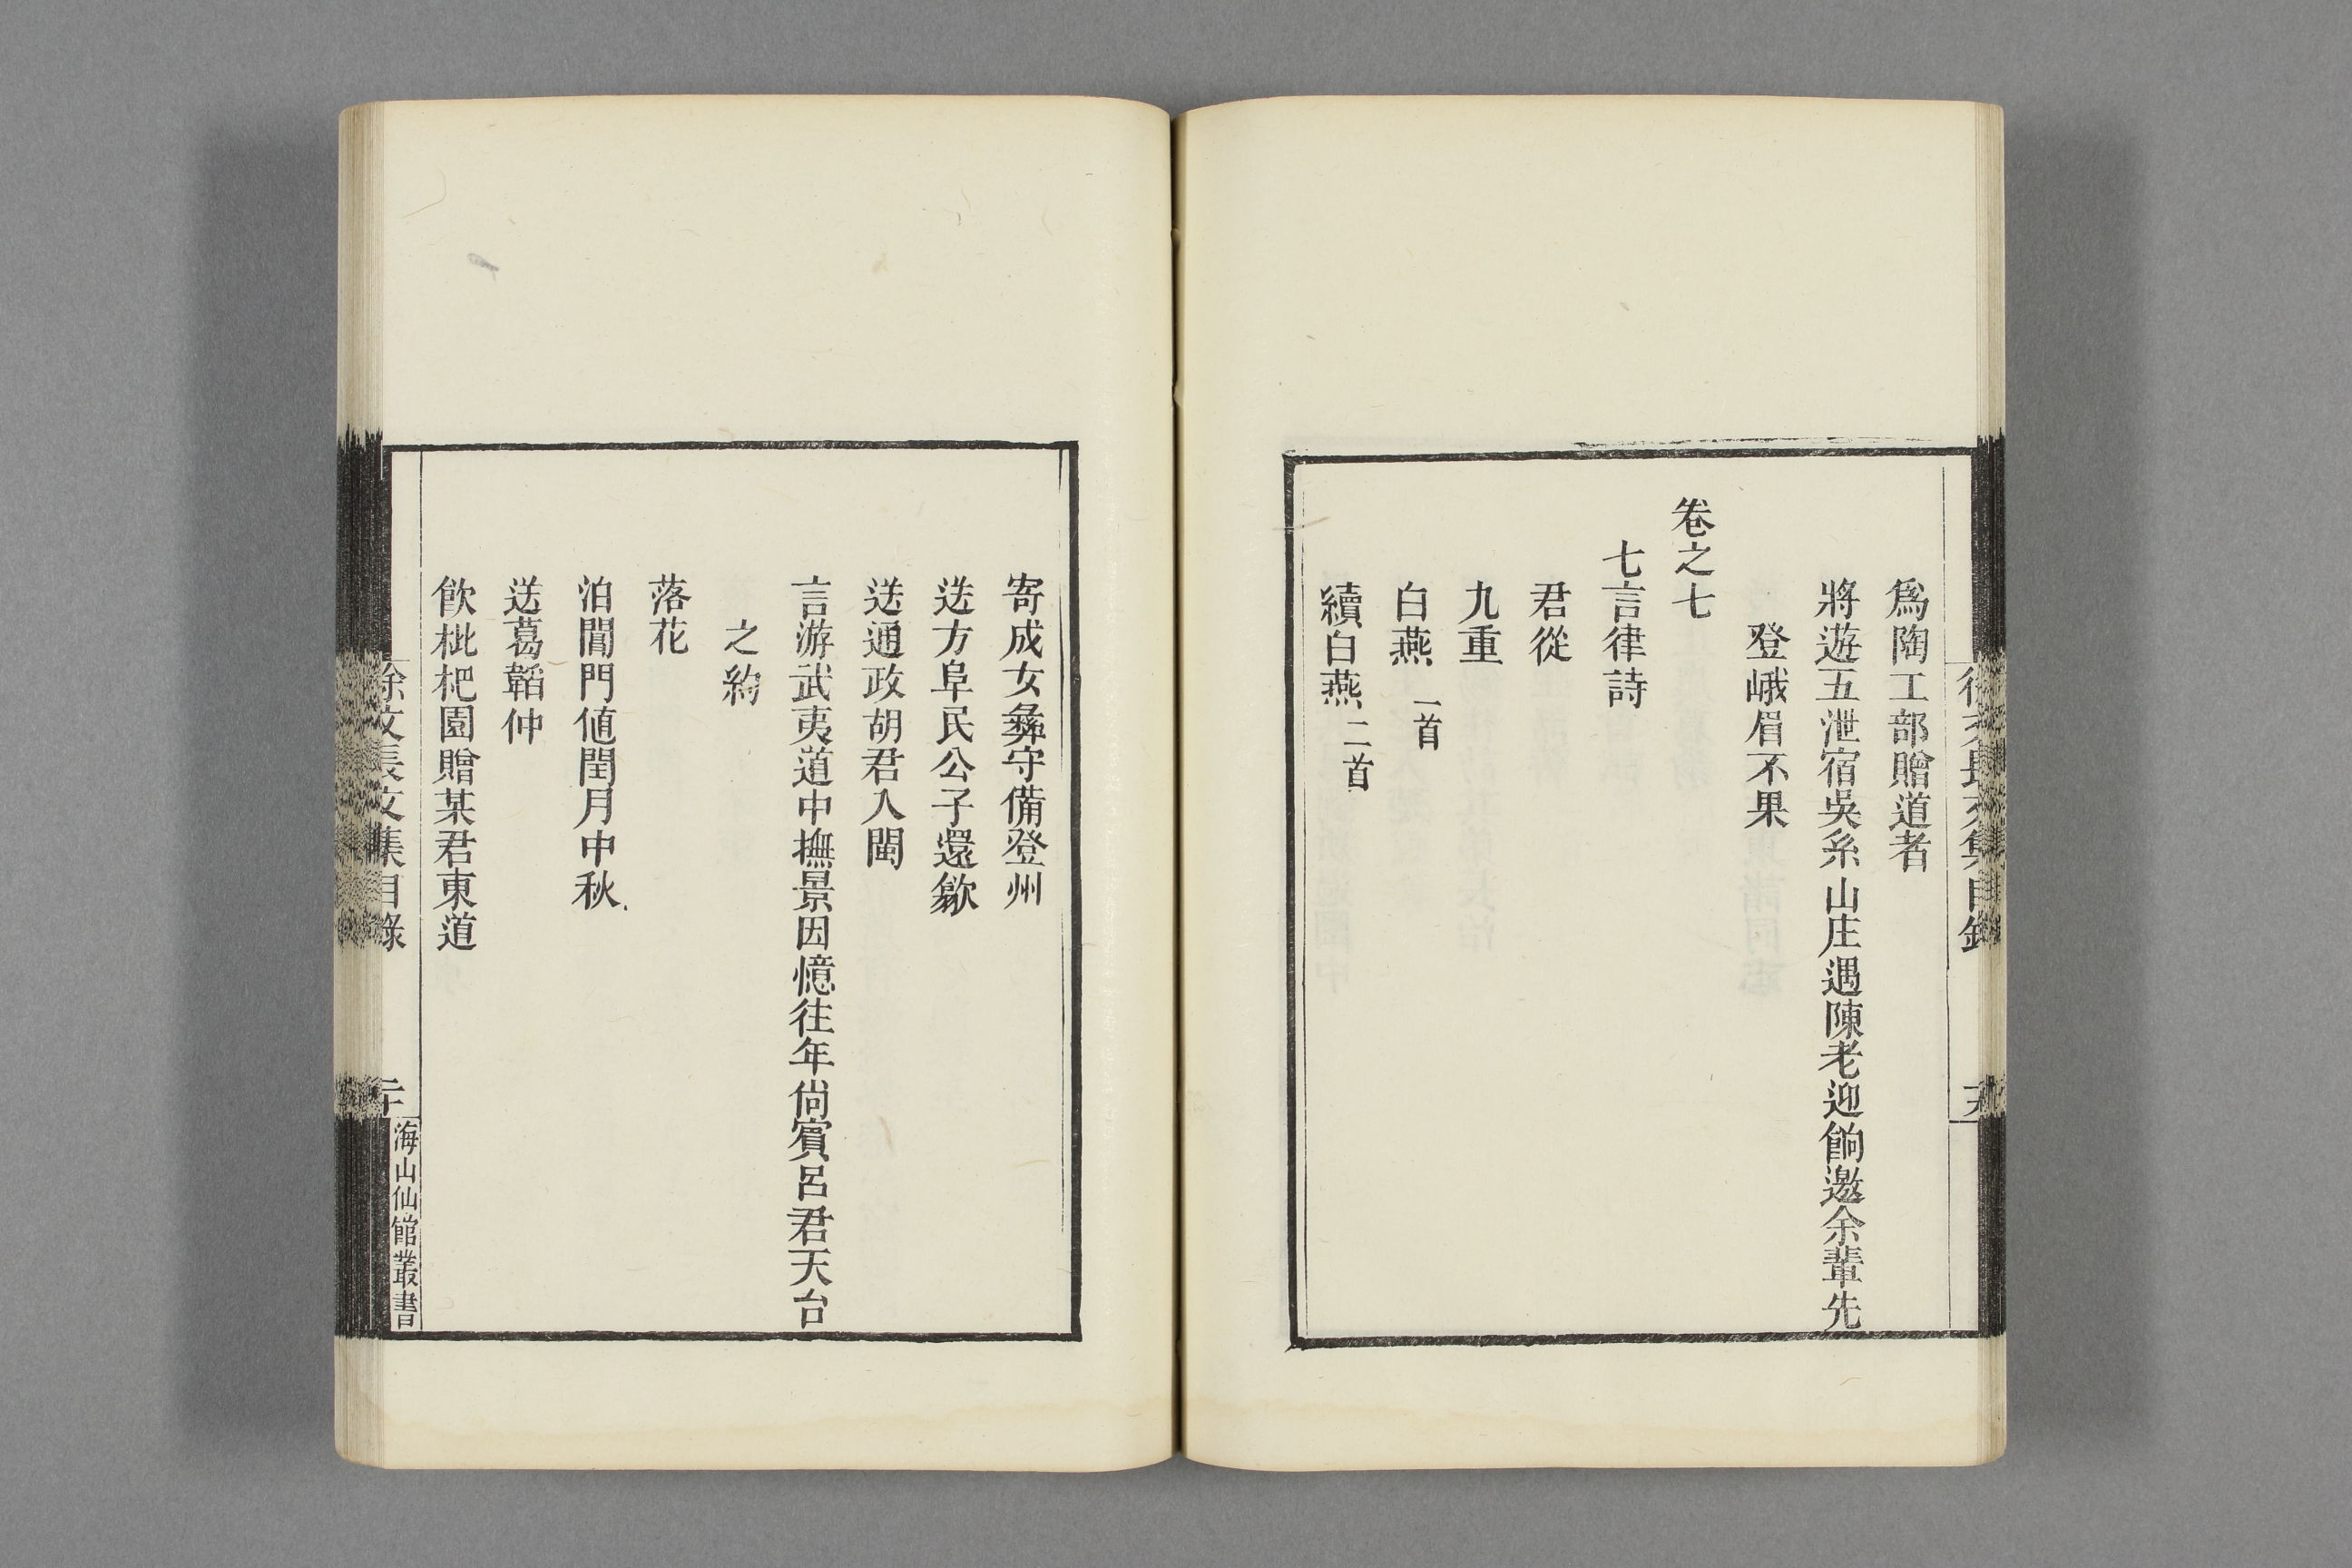 爲陶工部贈道者
將遊五泄宿吳系山庄遇陳老迎餉邀余輩先
登峨眉不果
卷之七
七言律詩
君從
九重
白燕 一首
續白燕 二首
寄成女彝守備登州
送方阜民公子還歙
送通政胡君入閩
言游武夷道中撫景因憶往年尙賓呂君天台
之約
落花
泊閶門値閏月中秋
送葛韜仲
飮枇杷園贈某君東道
徐文長文集目錄
二十
海山仙館叢書